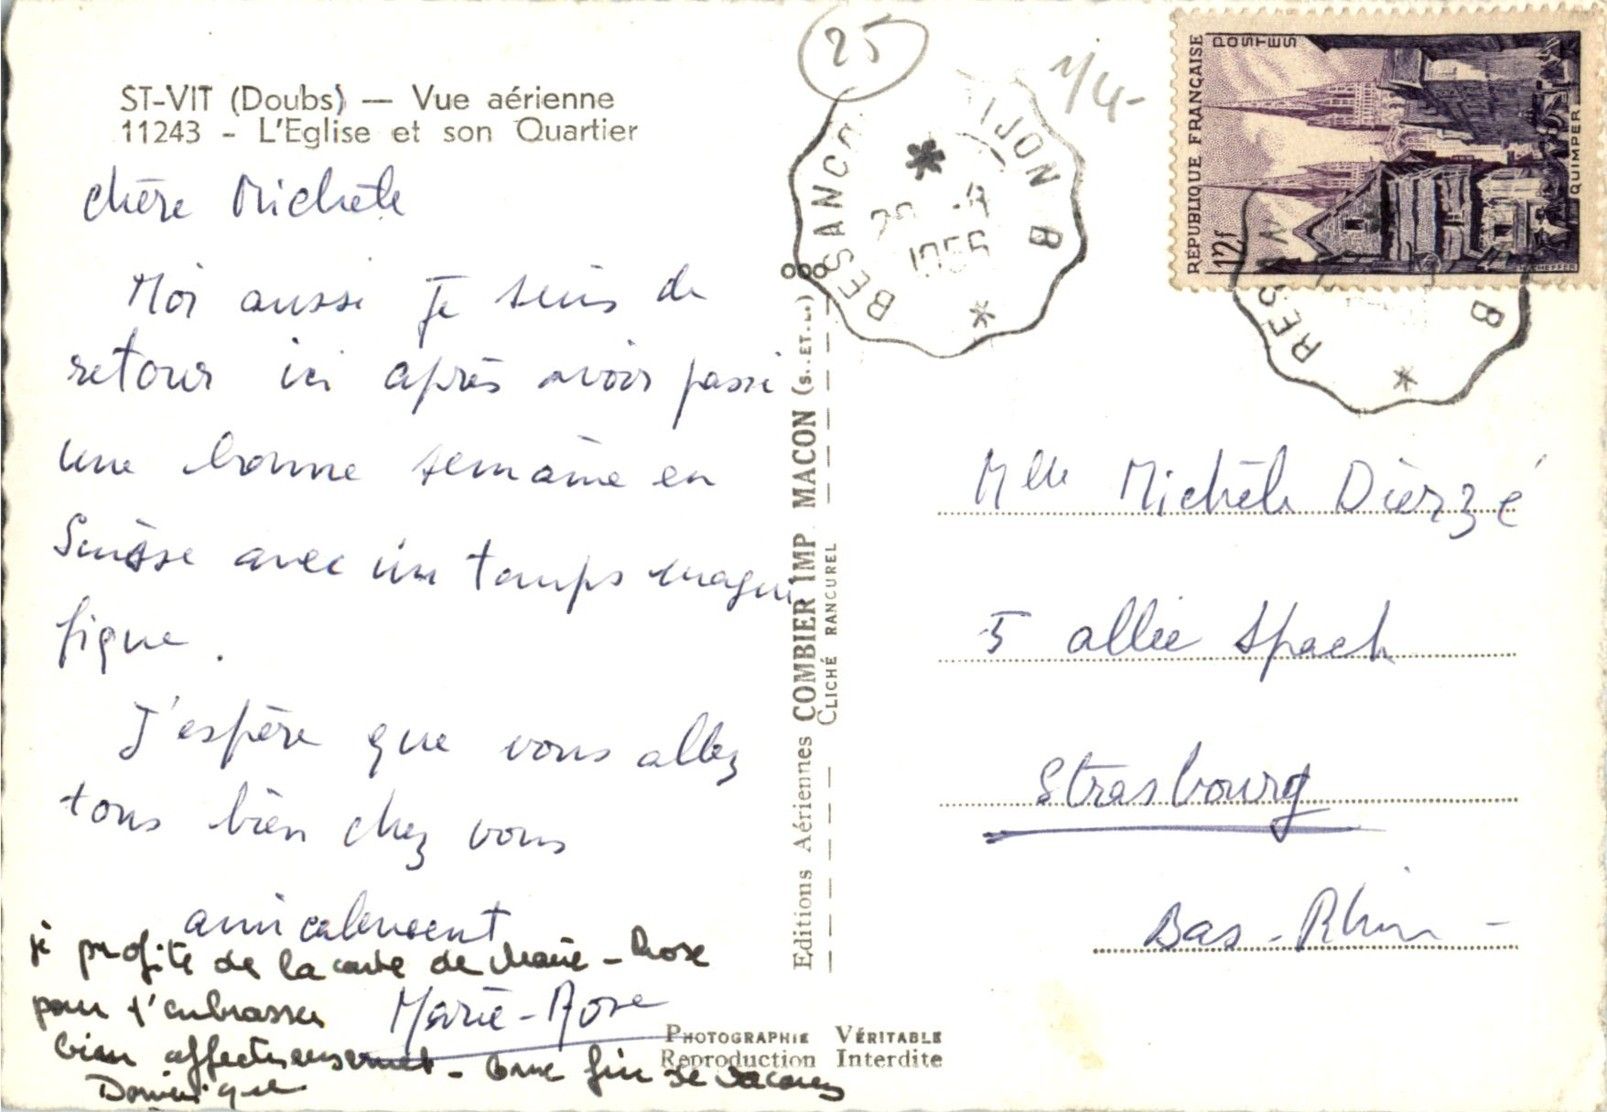 ST-VIT (Doubs) — Vue aérienne
11243 - L'Eglise et son Quartier
chère Michèle
Moi aussi je suis de
retour ici après avoir passé
une bonne semaine en
Suisse avec un temps magni
fique.
J'espère que vous allez
tous bien chez vous
amicalement
Marie-Rose
je profite de la carte de Marie-Rose
pour t'embrasser
bien affectueusement - bonne fin de vacances
Dominique
Editions Aériennes COMBIER IMP MACON (S.-ET-L.)
CLICHÉ RANCUREL
PHOTOGRAPHIE VÉRITABLE
Reproduction Interdite
25
1/4-
BESANCO
B
1955
RÉPUBLIQUE FRANÇAISE
POSTES
12f
QUIMPER
B
Mlle Michèle Dierzé
5 allée Spach
Strasbourg
Bas-Rhin-